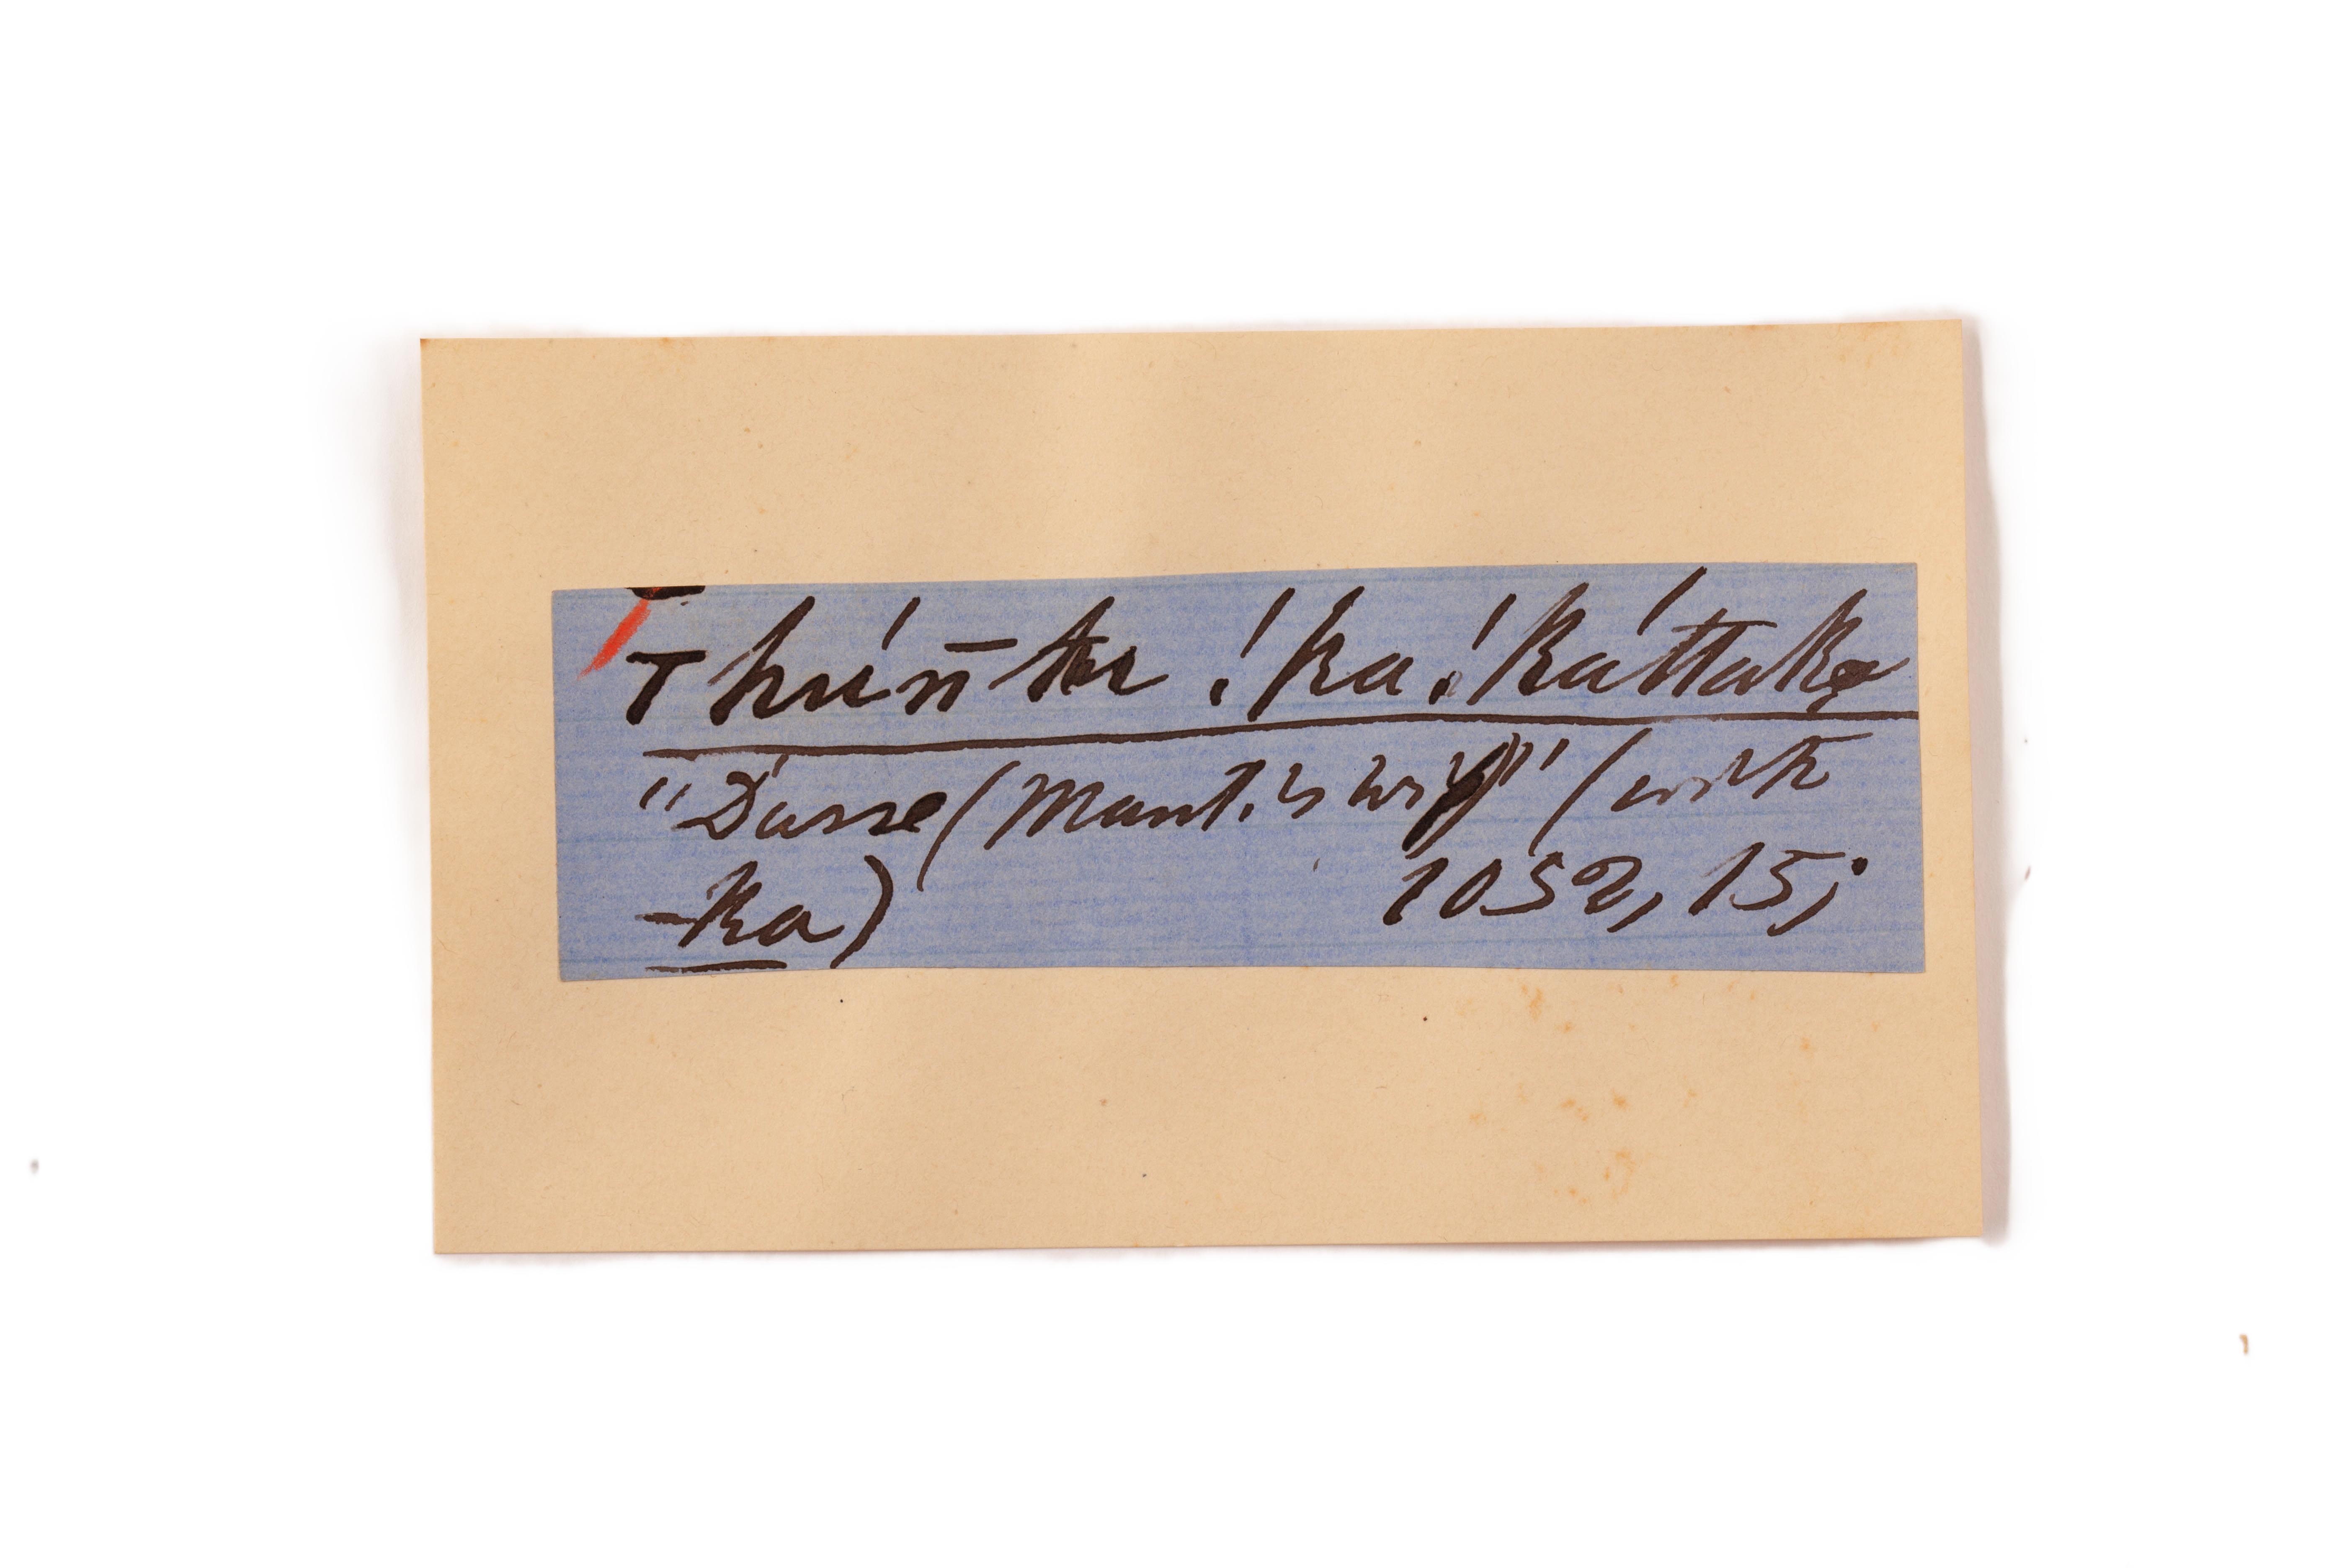 Thún̄tu !ka!káttakẹ
"Dasse (Mant.'s wife)" (with
-ka) 1052, 15;